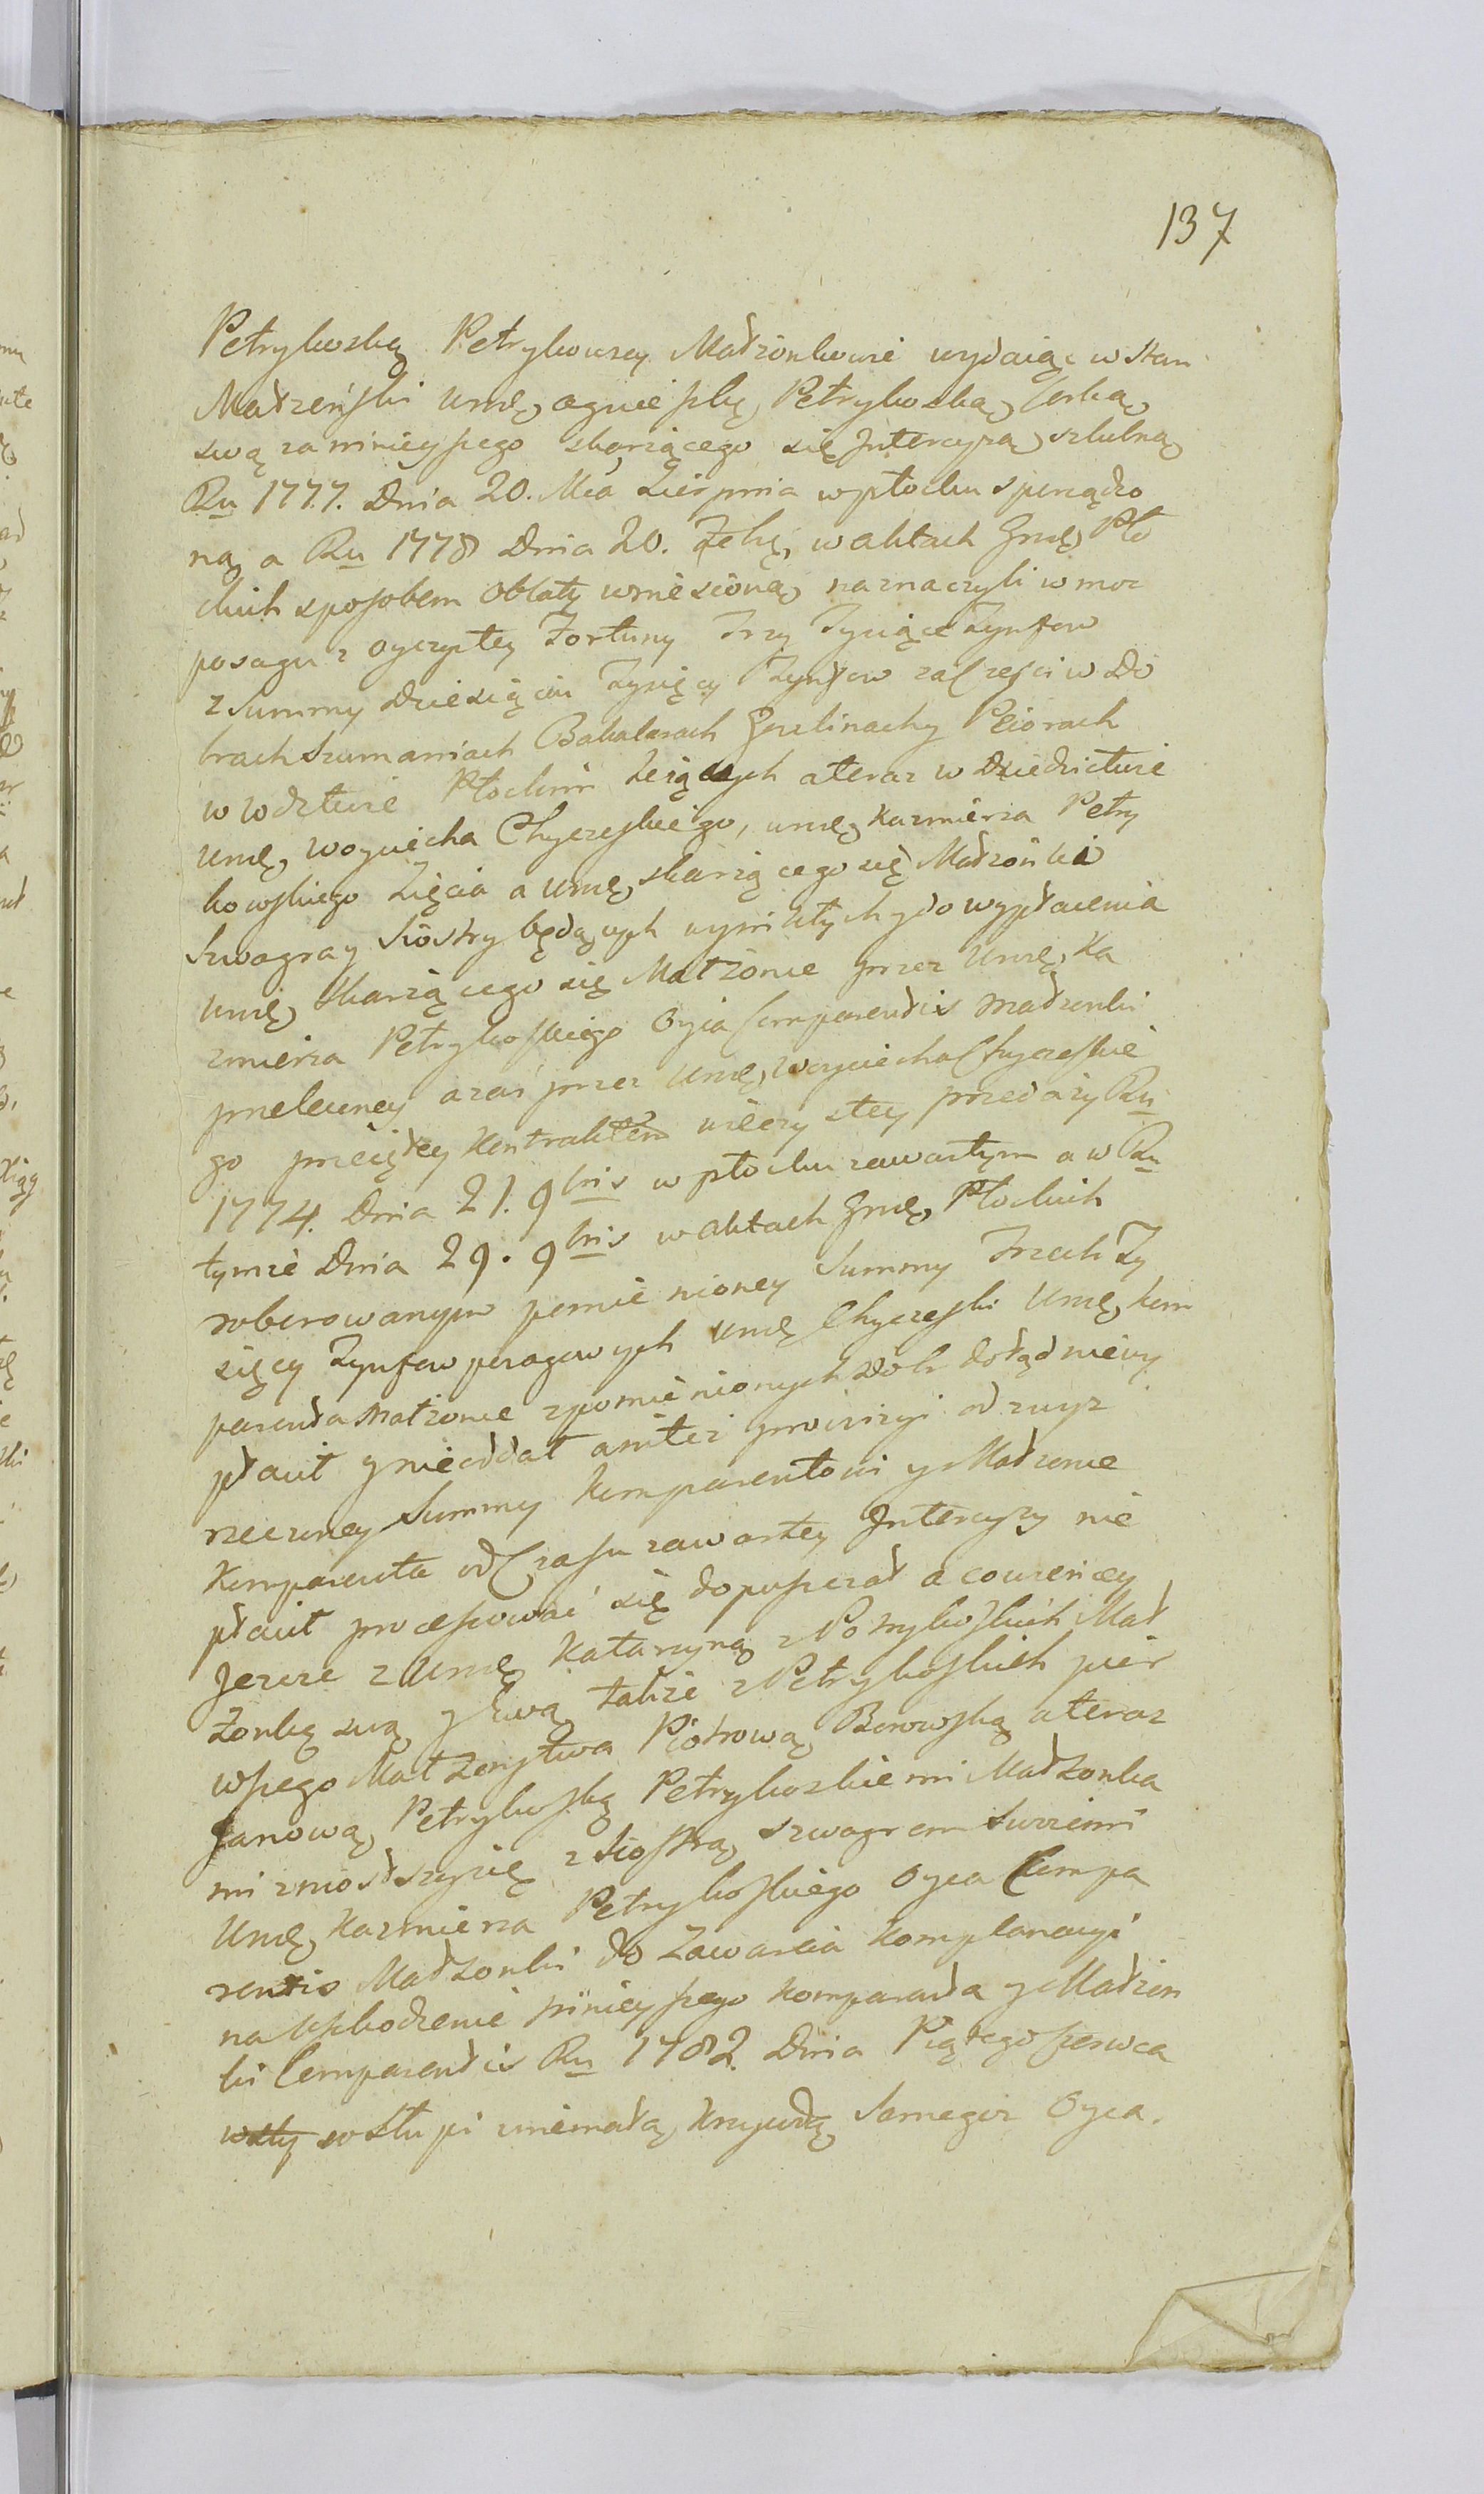 137
Petrykoską Petrykowscy Małżonkowie wydaiąc w stan
Małżeński Urnę, agnieszkę, Petrykoską, Corką,
swą za ninieyszego skarżącego się Intercyzą, szlubną,
Ru 1777. Dnia 20. Mca Sierpnia w płocku sporządzo
ną, a Ru 1778 Dnia 20. w aktach Grnę, Pło
ckich sposobem Oblaty wniesioną, naznaczyli w moc
posagu z oyczystey Fortuny Trzy Tysiące Tynfow
z Summy dziesiąciu Tysięcy Tynfow za Części w Do
brach Szumaniach Bakalarach Goslinachy Pciorach
w wdztwie Płockim Leżących a teraz w Dziedzictwie
Urnę, woyciecha Chyczeskiego, urnę, Kazmierza Petry
kowskiego Zięcia a Urnę, skarżącego się Małżonki
Szwagra y Siostry będących wynikłych y do wypłacenia
Urnę, skarżącego się Małżonce przez Urnę, Ka
zmierza Petrykoskiego Oyca Comparentis małżonki
przelewney a zaś przez Urnę, Woyciecha Chyczeskie
go przeiętey Kontraktem wieczystey przedaży Ru
1774. Dnia 21. 9bris w płocku zawartym a w Ru
tymże Dnia 29. 9bris w aktach Grnę, Płockich
roborowanym pomienioney Summy Trzech Ty
sięcy Tynfow posagowych Urnę Chyczeski Urnę, kom
parenta Małżonce z pomienionych Dobr dotąd nie wy
płacił y nieoddał ani też prowizyi od zwyż
rzeczoney Summy Komparentowi y Małżonce
Komparenta od Czasu zawartey Intercyzy nie
płacił procesować się dopuszczał a cowieńcey
Jeszcze z Urnę, Katarzyną, z Petrykoskich Mał
żonką swą, y Ewą, także z Petrykoskich pier
wszego Małżenstwa Piotrową, Borowską a teraz
Janową, Petrykoską Petrykoskiemi Małżonka
mi zniosłszysię z Siostrą, szwagrem swoiemi
Urnę, Kazmierza Petrykoskiego Oyca Compa
rentis Małżonki do Zawarcia Komplanacyi
na Uszkodzenie ninieyszego Komparenta y Małżon
ki Comparentis Ru 1782. Dnia Piątego Czerwca
wstę wstąpi zniemałą, krzywdą Samegoż Oyca.